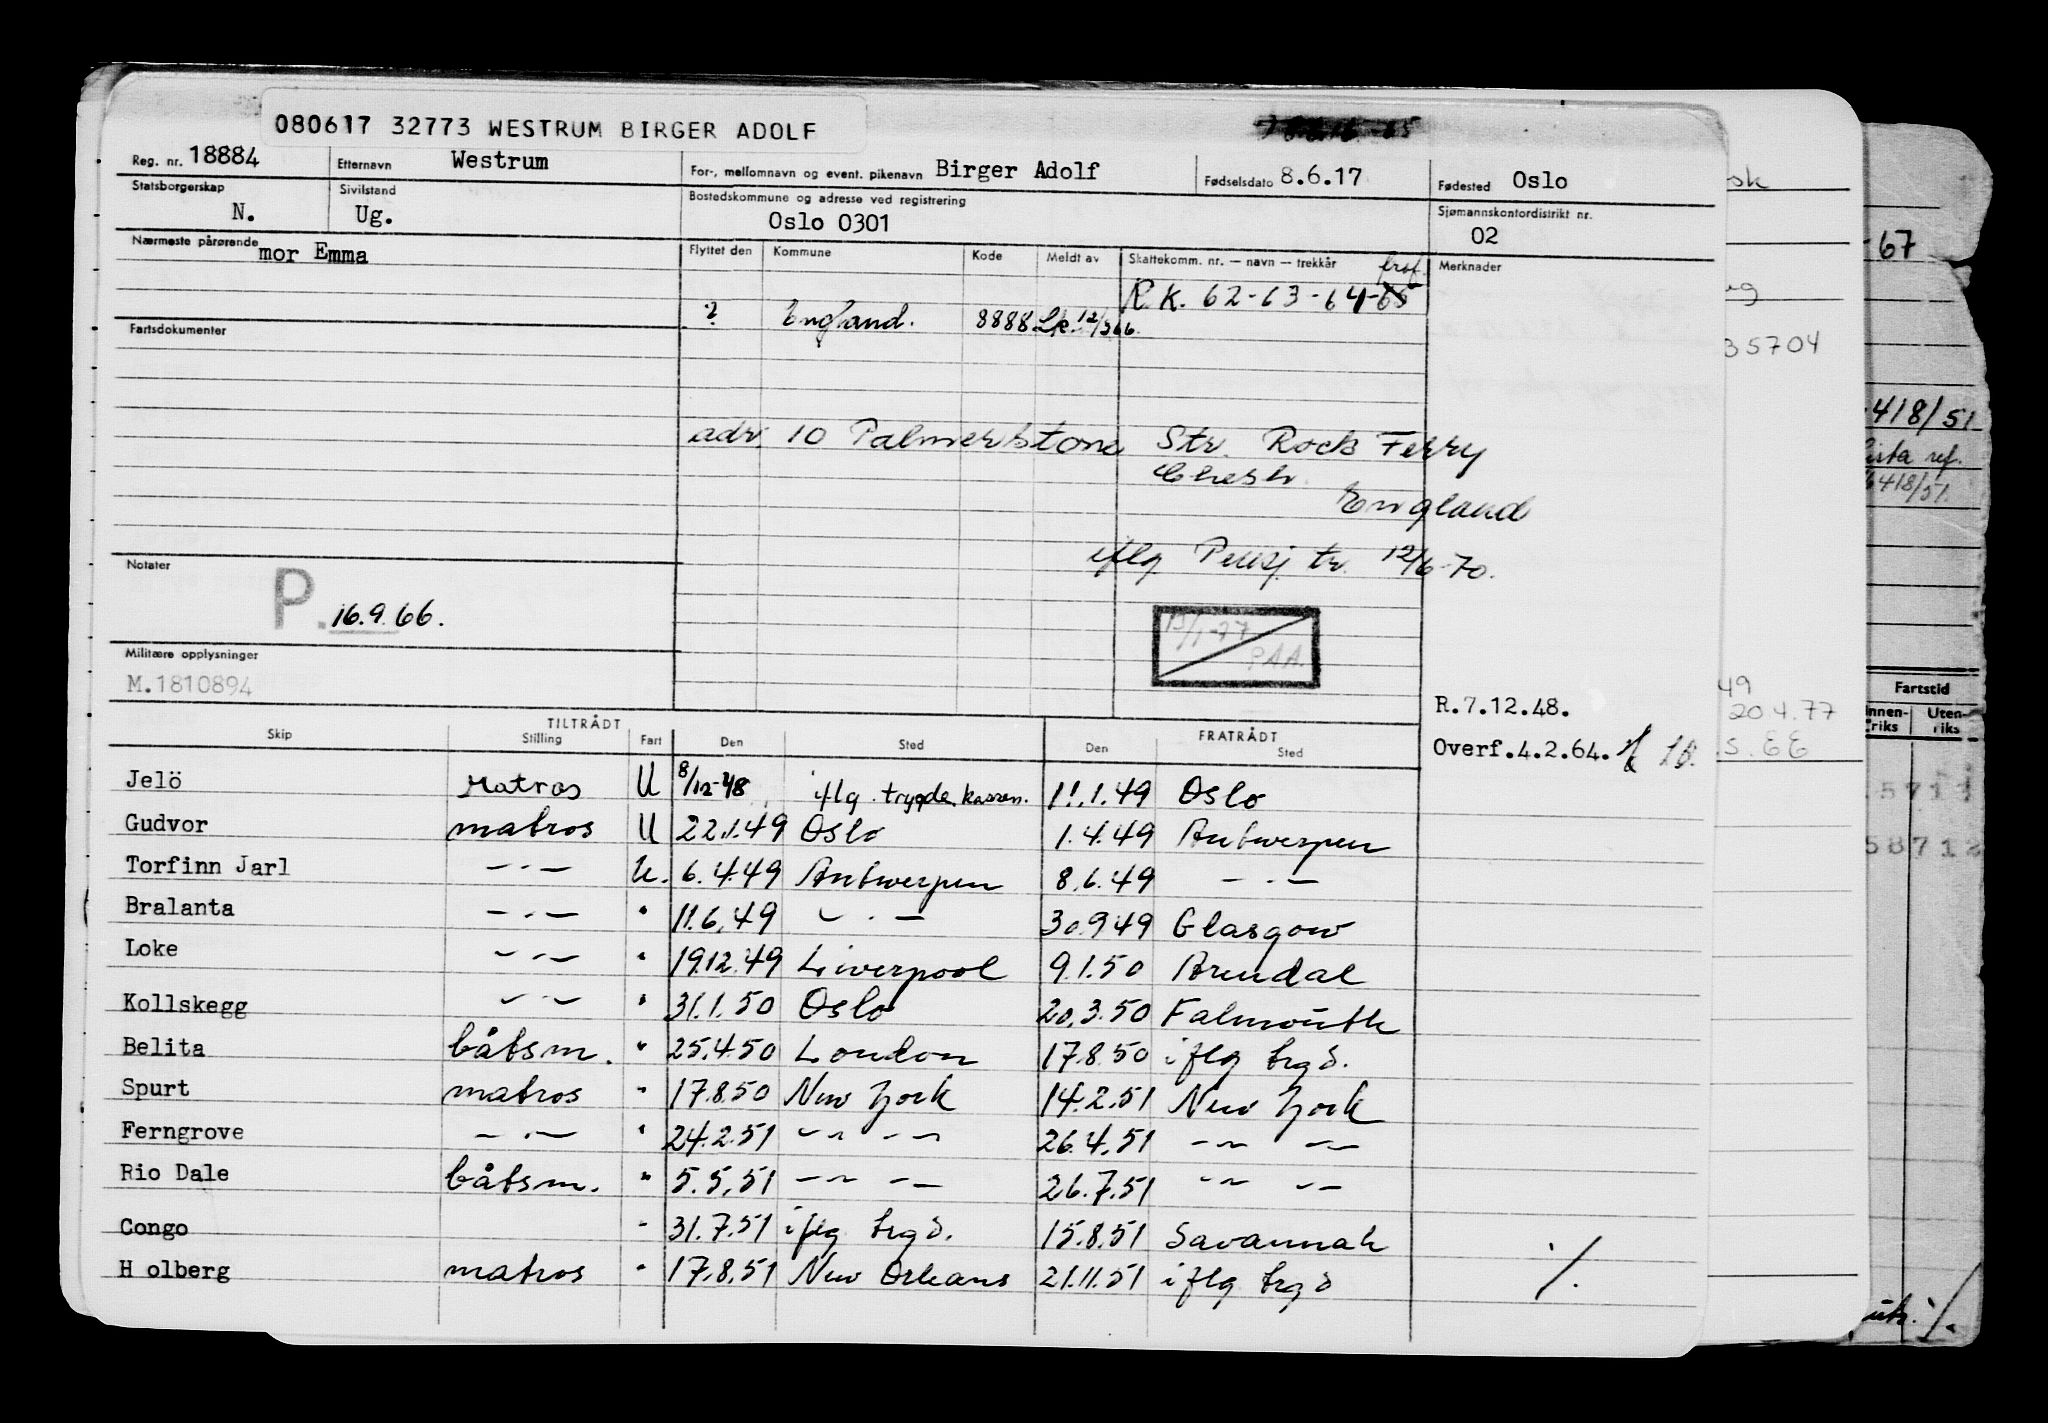 080617 32773 WESTRUM BIRGER ADOLF
Reg. nr. 18884 Etternavn Westrum For-, mellomnavn og event. pikenavn Birger Adolf Fødselsdato 8.6.17 Fødested Oslo
Statsborgerskap N. Sivilstand Ug. Bostedskommune og adresse ved registrering Oslo 0301 Sjømannskontordistrikt nr. 02
Nærmeste pårørende mor Emma Flyttet den Kommune Kode Meldt av Skattekomm. nr. — navn — trekkår Merknader
R.K. 62-63-64-65
? England. 8888 Lk. 12/3 66.
Fartsdokumenter
adr. 10 Palmerstone Str. Rock Ferry
Chesh.
England
iflg Pensj. tr. 12/6-70.
Notater
P. 16.9.66.
13/1-77
PAA.
Militære opplysninger
M.1810894
R.7.12.48.
Overf.4.2.64.
TILTRÅDT FRATRÅDT
Skip Stilling Fart Den Sted Den Sted
Jelö Matros U 8/12-48 iflg. trygdekassen. 11.1.49 Oslo
Gudvor matros U 22.1.49 Oslo 1.4.49 Antwerpen
Torfinn Jarl —·— U. 6.4.49 Antwerpen 8.6.49 —·—
Bralanta —·— " 11.6.49 —·— 30.9.49 Glasgow
Loke —·— " 19.12.49 Liverpool 9.1.50 Arendal
Kollskegg —·— " 31.1.50 Oslo 20.3.50 Falmouth
Belita båtsm. " 25.4.50 London 17.8.50 iflg trgd.
Spurt matros " 17.8.50 New York 14.2.51 New York
Ferngrove —·— " 24.2.51 —"— —"— 26.4.51 —"— —"—
Rio Dale båtsm. " 5.5.51 —"— —"— 26.7.51 —"— —"—
Congo " 31.7.51 iflg trgd. 15.8.51 Savannah
Holberg matros " 17.8.51 New Orleans 21.11.51 iflg trgd ./.
-67
35704
418/51
Lista ref.
6418/51
49
20.4.77
Fartstid
Innen-riks Uten-riks
5711
58712
./.